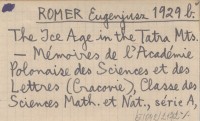 ROMER Eugenjusz 1929 b.
The Ice Age in the Tatra Mts.
— Mémoires de l'Académie
Polonaise des Sciences et des
Lettres (Cracovie), Classe des
Sciences Math. et Nat., série A,